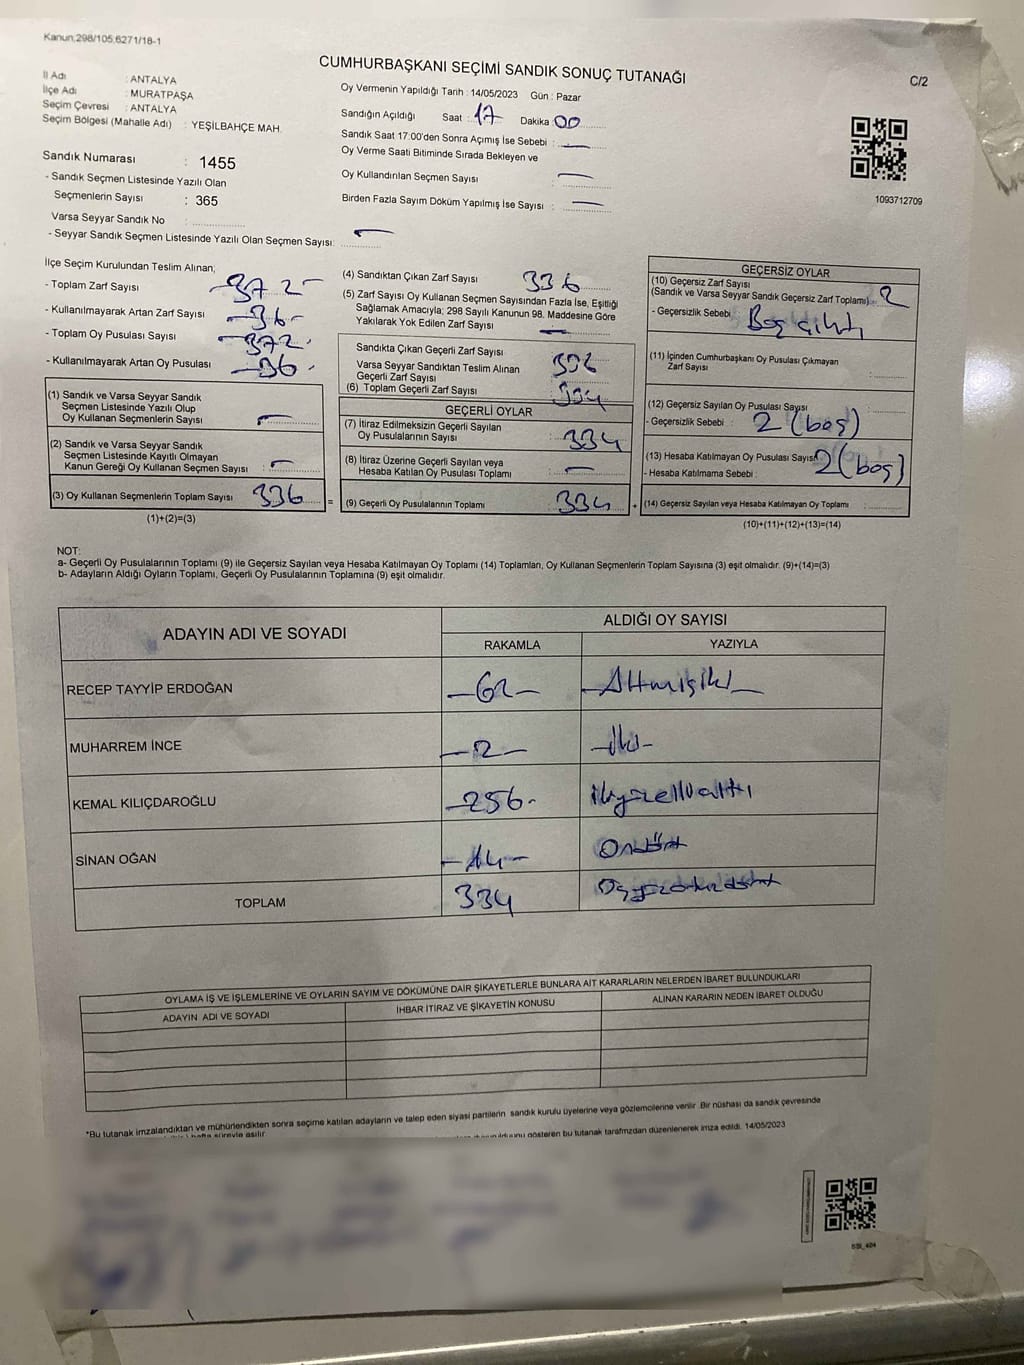 Kanun:298/105;6271/18-1
CUMHURBAŞKANI SEÇİMİ SANDIK SONUÇ TUTANAĞI
C/2
İl Adı : ANTALYA
İlçe Adı : MURATPAŞA
Seçim Çevresi : ANTALYA
Seçim Bölgesi (Mahalle Adı) : YEŞİLBAHÇE MAH.
Sandık Numarası : 1455
- Sandık Seçmen Listesinde Yazılı Olan
Seçmenlerin Sayısı : 365
Varsa Seyyar Sandık No :
- Seyyar Sandık Seçmen Listesinde Yazılı Olan Seçmen Sayısı: —
Oy Vermenin Yapıldığı Tarih : 14/05/2023 Gün : Pazar
Sandığın Açıldığı Saat : 17 Dakika : 00
Sandık Saat 17:00'den Sonra Açılmış İse Sebebi : —
Oy Verme Saati Bitiminde Sırada Bekleyen ve
Oy Kullandırılan Seçmen Sayısı : —
Birden Fazla Sayım Döküm Yapılmış İse Sayısı : —
1093712709
İlçe Seçim Kurulundan Teslim Alınan;
- Toplam Zarf Sayısı : -372-
- Kullanılmayarak Artan Zarf Sayısı : -36-
- Toplam Oy Pusulası Sayısı : -372-
- Kullanılmayarak Artan Oy Pusulası : -36-
(1) Sandık ve Varsa Seyyar Sandık
Seçmen Listesinde Yazılı Olup
Oy Kullanan Seçmenlerin Sayısı : —
(2) Sandık ve Varsa Seyyar Sandık
Seçmen Listesinde Kayıtlı Olmayan
Kanun Gereği Oy Kullanan Seçmen Sayısı : —
(3) Oy Kullanan Seçmenlerin Toplam Sayısı 336
(1)+(2)=(3)
=
(4) Sandıktan Çıkan Zarf Sayısı : 336
(5) Zarf Sayısı Oy Kullanan Seçmen Sayısından Fazla İse, Eşitliği
Sağlamak Amacıyla; 298 Sayılı Kanunun 98. Maddesine Göre
Yakılarak Yok Edilen Zarf Sayısı : —
Sandıkta Çıkan Geçerli Zarf Sayısı : 336
Varsa Seyyar Sandıktan Teslim Alınan
Geçerli Zarf Sayısı
(6) Toplam Geçerli Zarf Sayısı : 334
GEÇERLİ OYLAR
(7) İtiraz Edilmeksizin Geçerli Sayılan
Oy Pusulalarının Sayısı : 334
(8) İtiraz Üzerine Geçerli Sayılan veya
Hesaba Katılan Oy Pusulası Toplamı : —
(9) Geçerli Oy Pusulalarının Toplamı : 334
+
GEÇERSİZ OYLAR
(10) Geçersiz Zarf Sayısı
(Sandık ve Varsa Seyyar Sandık Geçersiz Zarf Toplamı) : 2
- Geçersizlik Sebebi : Boş çıktı
(11) İçinden Cumhurbaşkanı Oy Pusulası Çıkmayan
Zarf Sayısı :
(12) Geçersiz Sayılan Oy Pusulası Sayısı :
- Geçersizlik Sebebi : 2 (boş)
(13) Hesaba Katılmayan Oy Pusulası Sayısı : 2 (boş)
- Hesaba Katılmama Sebebi :
(14) Geçersiz Sayılan veya Hesaba Katılmayan Oy Toplamı :
(10)+(11)+(12)+(13)=(14)
NOT:
a- Geçerli Oy Pusulalarının Toplamı (9) ile Geçersiz Sayılan veya Hesaba Katılmayan Oy Toplamı (14) Toplamları, Oy Kullanan Seçmenlerin Toplam Sayısına (3) eşit olmalıdır. (9)+(14)=(3)
b- Adayların Aldığı Oyların Toplamı, Geçerli Oy Pusulalarının Toplamına (9) eşit olmalıdır.
ADAYIN ADI VE SOYADI
ALDIĞI OY SAYISI
RAKAMLA YAZIYLA
RECEP TAYYİP ERDOĞAN -62- -Altmışiki-
MUHARREM İNCE -2- -iki-
KEMAL KILIÇDAROĞLU -256- ikiyüzellialtı
SİNAN OĞAN -14- Ondört
TOPLAM 334 Üçyüzotuzdört
OYLAMA İŞ VE İŞLEMLERİNE VE OYLARIN SAYIM VE DÖKÜMÜNE DAİR ŞİKAYETLERLE BUNLARA AİT KARARLARIN NELERDEN İBARET BULUNDUKLARI
ADAYIN ADI VE SOYADI İHBAR İTİRAZ VE ŞİKAYETİN KONUSU ALINAN KARARIN NEDEN İBARET OLDUĞU
*Bu tutanak imzalandıktan ve mühürlendikten sonra seçime katılan adayların ve talep eden siyasi partilerin sandık kurulu üyelerine veya gözlemcilerine verilir. Bir nüshası da sandık çevresinde
hafta süreyle asılır.
gösteren bu tutanak tarafımızdan düzenlenerek imza edildi. 14/05/2023